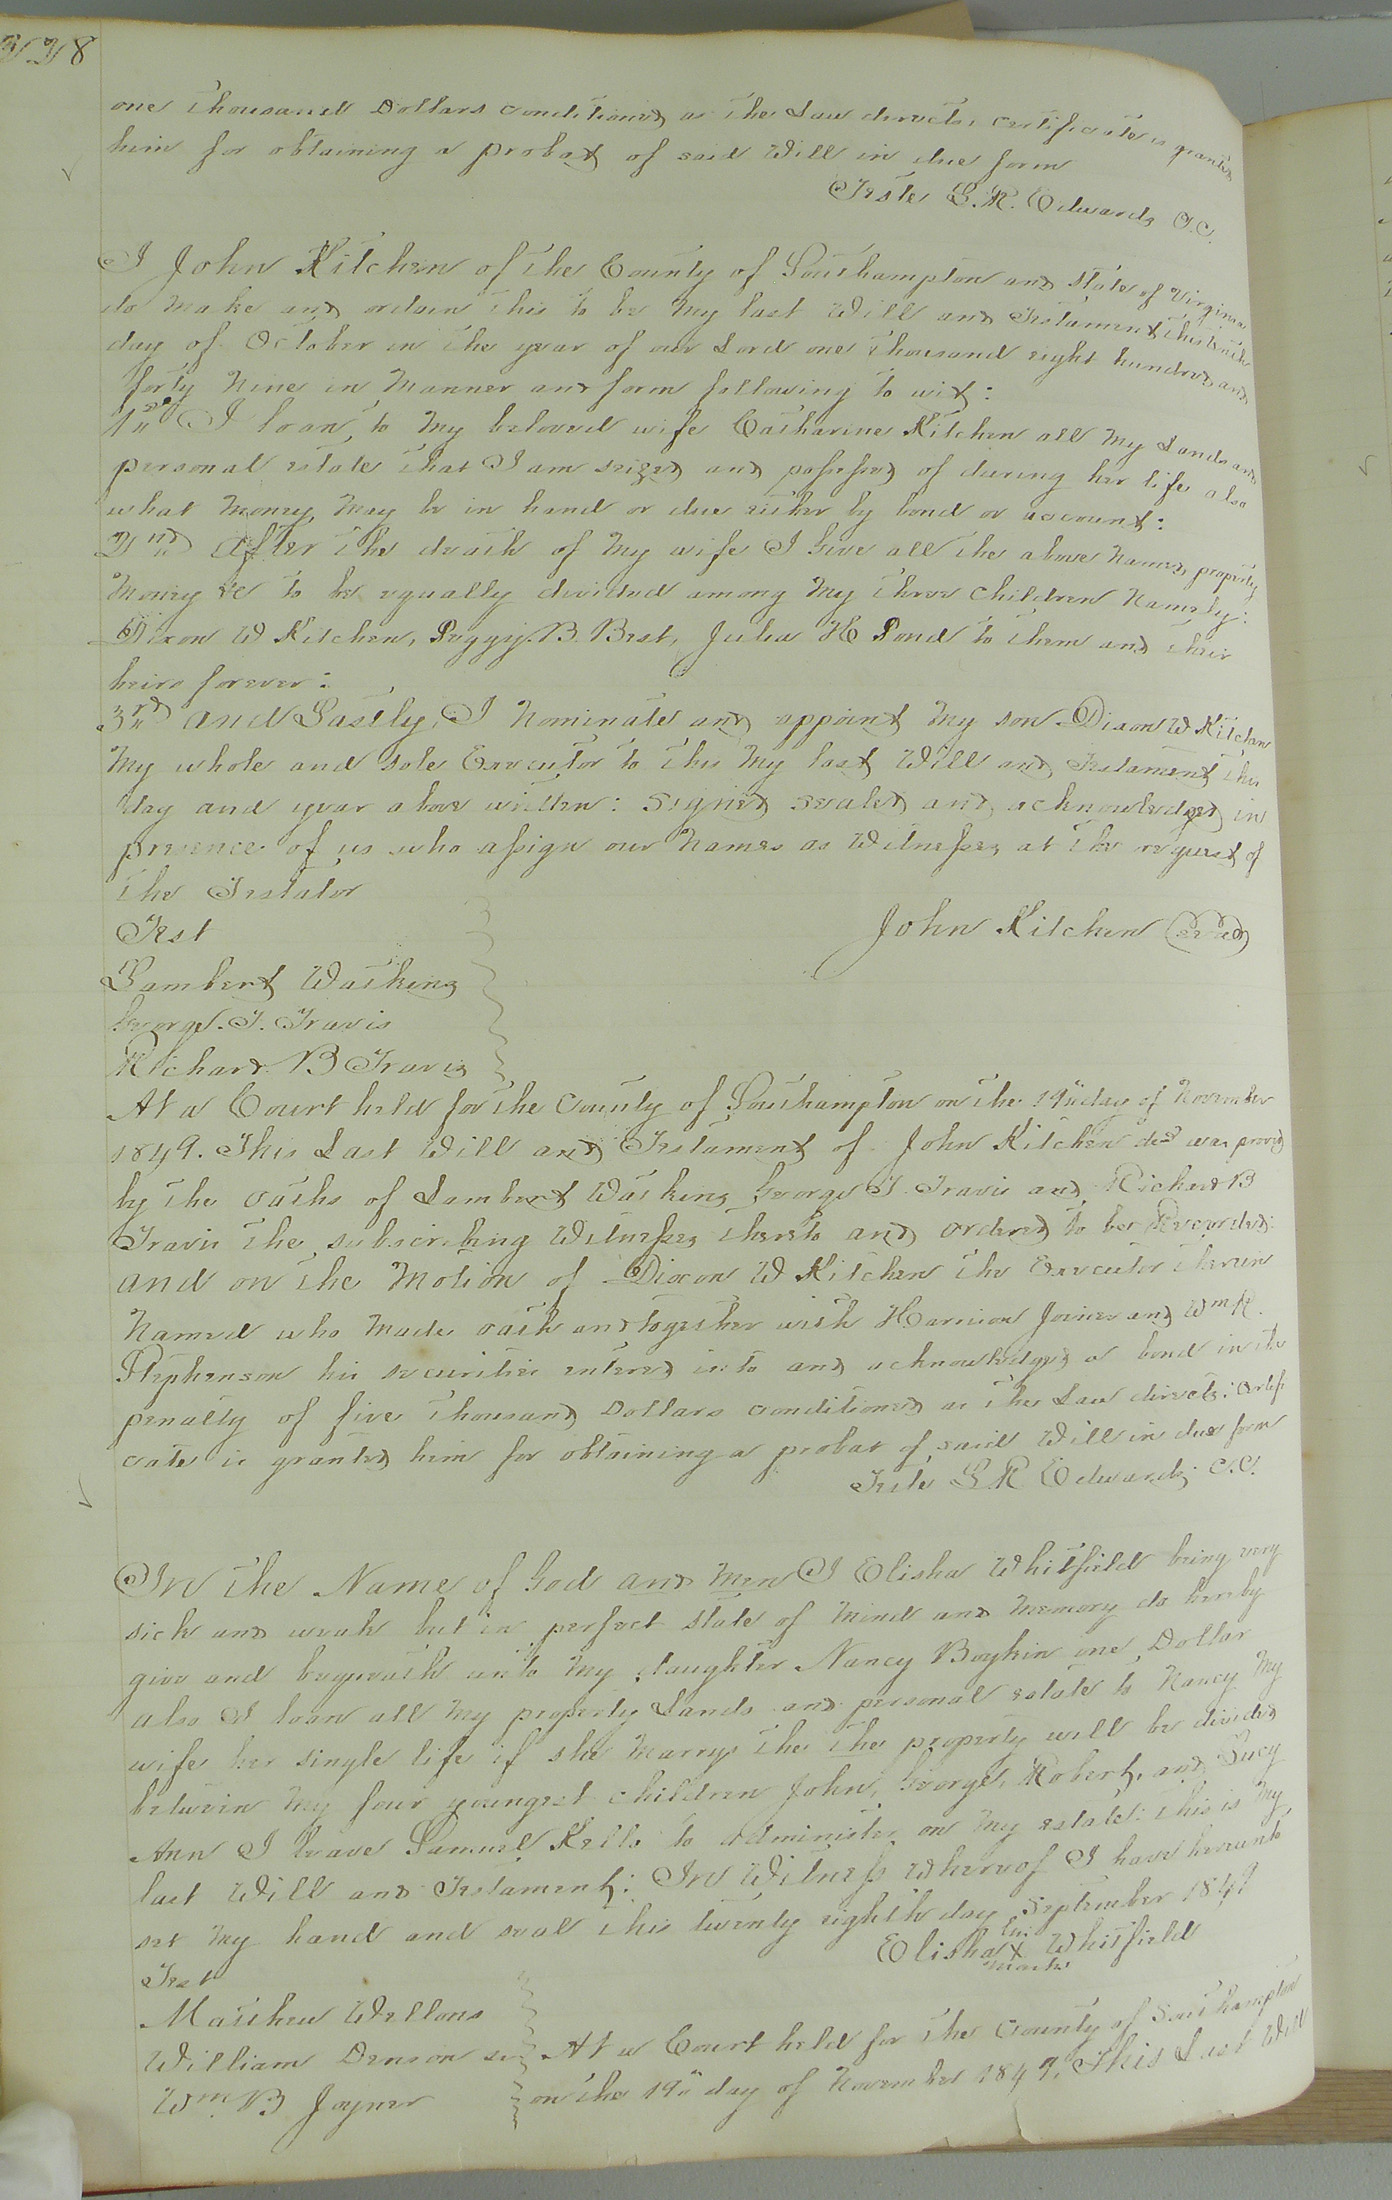 one thousand Dollars conditioned as the Law directs, certificate is granted
him for obtaining a probat of said Will in due form
Teste L. R. Edwards C.C.
I John Kitchen of the County of Southampton and State of Virginia
do make and ordain this to be my last Will and Testament this
day of October in the year of our Lord one thousand eight hundred and
forty Nine in Manner and form following to wit:
1st I loan, to my beloved wife Catharine Kitchen all my Lands and
personal estate that I am seized and possessed of during her life also
what money, may be in hand or due either by bond or account:
2nd After the death of my wife I Give all the above Named property
Money &c to be equally divided among my three children Namely:
Dixon W Kitchen, Peggy B. Best, Julia H Pond to them and their
heirs forever:
3rd and Lastly, I Nominate and appoint my son Dixon W Kitchen
My whole and sole Executor to this my last Will and Testament the
day and year above written: Signed sealed and acknowledged in
presence of us who assign our Names as Witnesses at the request of
the Testator
Test
John Kitchen (Seal)
Lambert Watkins
George. T. Travis
Richard. B Travis
At a Court held for the County of Southampton on the 19" day of November
1849. This Last Will and Testament of John Kitchen decd was proved
by the oaths of Lambert Watkins George T. Travis and Richard B
Travis the subscribing Witnesses thereto and ordered to be Recorded:
and on the Motion of Dixon W Kitchen the Executor therein
Named who made oath and together with Harrison Joiner and Wm R.
Stephenson his securities entered into and acknowledged a bond in the
penalty of five thousand Dollars conditioned as the Law directs: Certifi
cate is granted him for obtaining a probat of said Will in due form
Teste L R Edwards, C.C.
In the Name of God and Men I Elisha Whitfield being very
sick and weak but in perfect state of Mind and Memory do hereby
give and bequeath unto my daughter Nancy Boykin one Dollar
also I loan all my property Lands and personal estate to Nancy my
wife her single life if she Marrys the the property will be divided
between my four youngest children John, George, Robert, and Lucy
Ann I leave Samuel Kello to administer on my estate: this is my
last Will and Testament: In Witness Whereof I have hereunto
set my hand and seal this twenty eighth day September 1849
his
Elisha X Whitfield
mark
Test
Matthew Wellons
William Denson sr At a Court held for the County of Southampton
Wm. B Joyner on the 19" day of November 1849. This Last Will